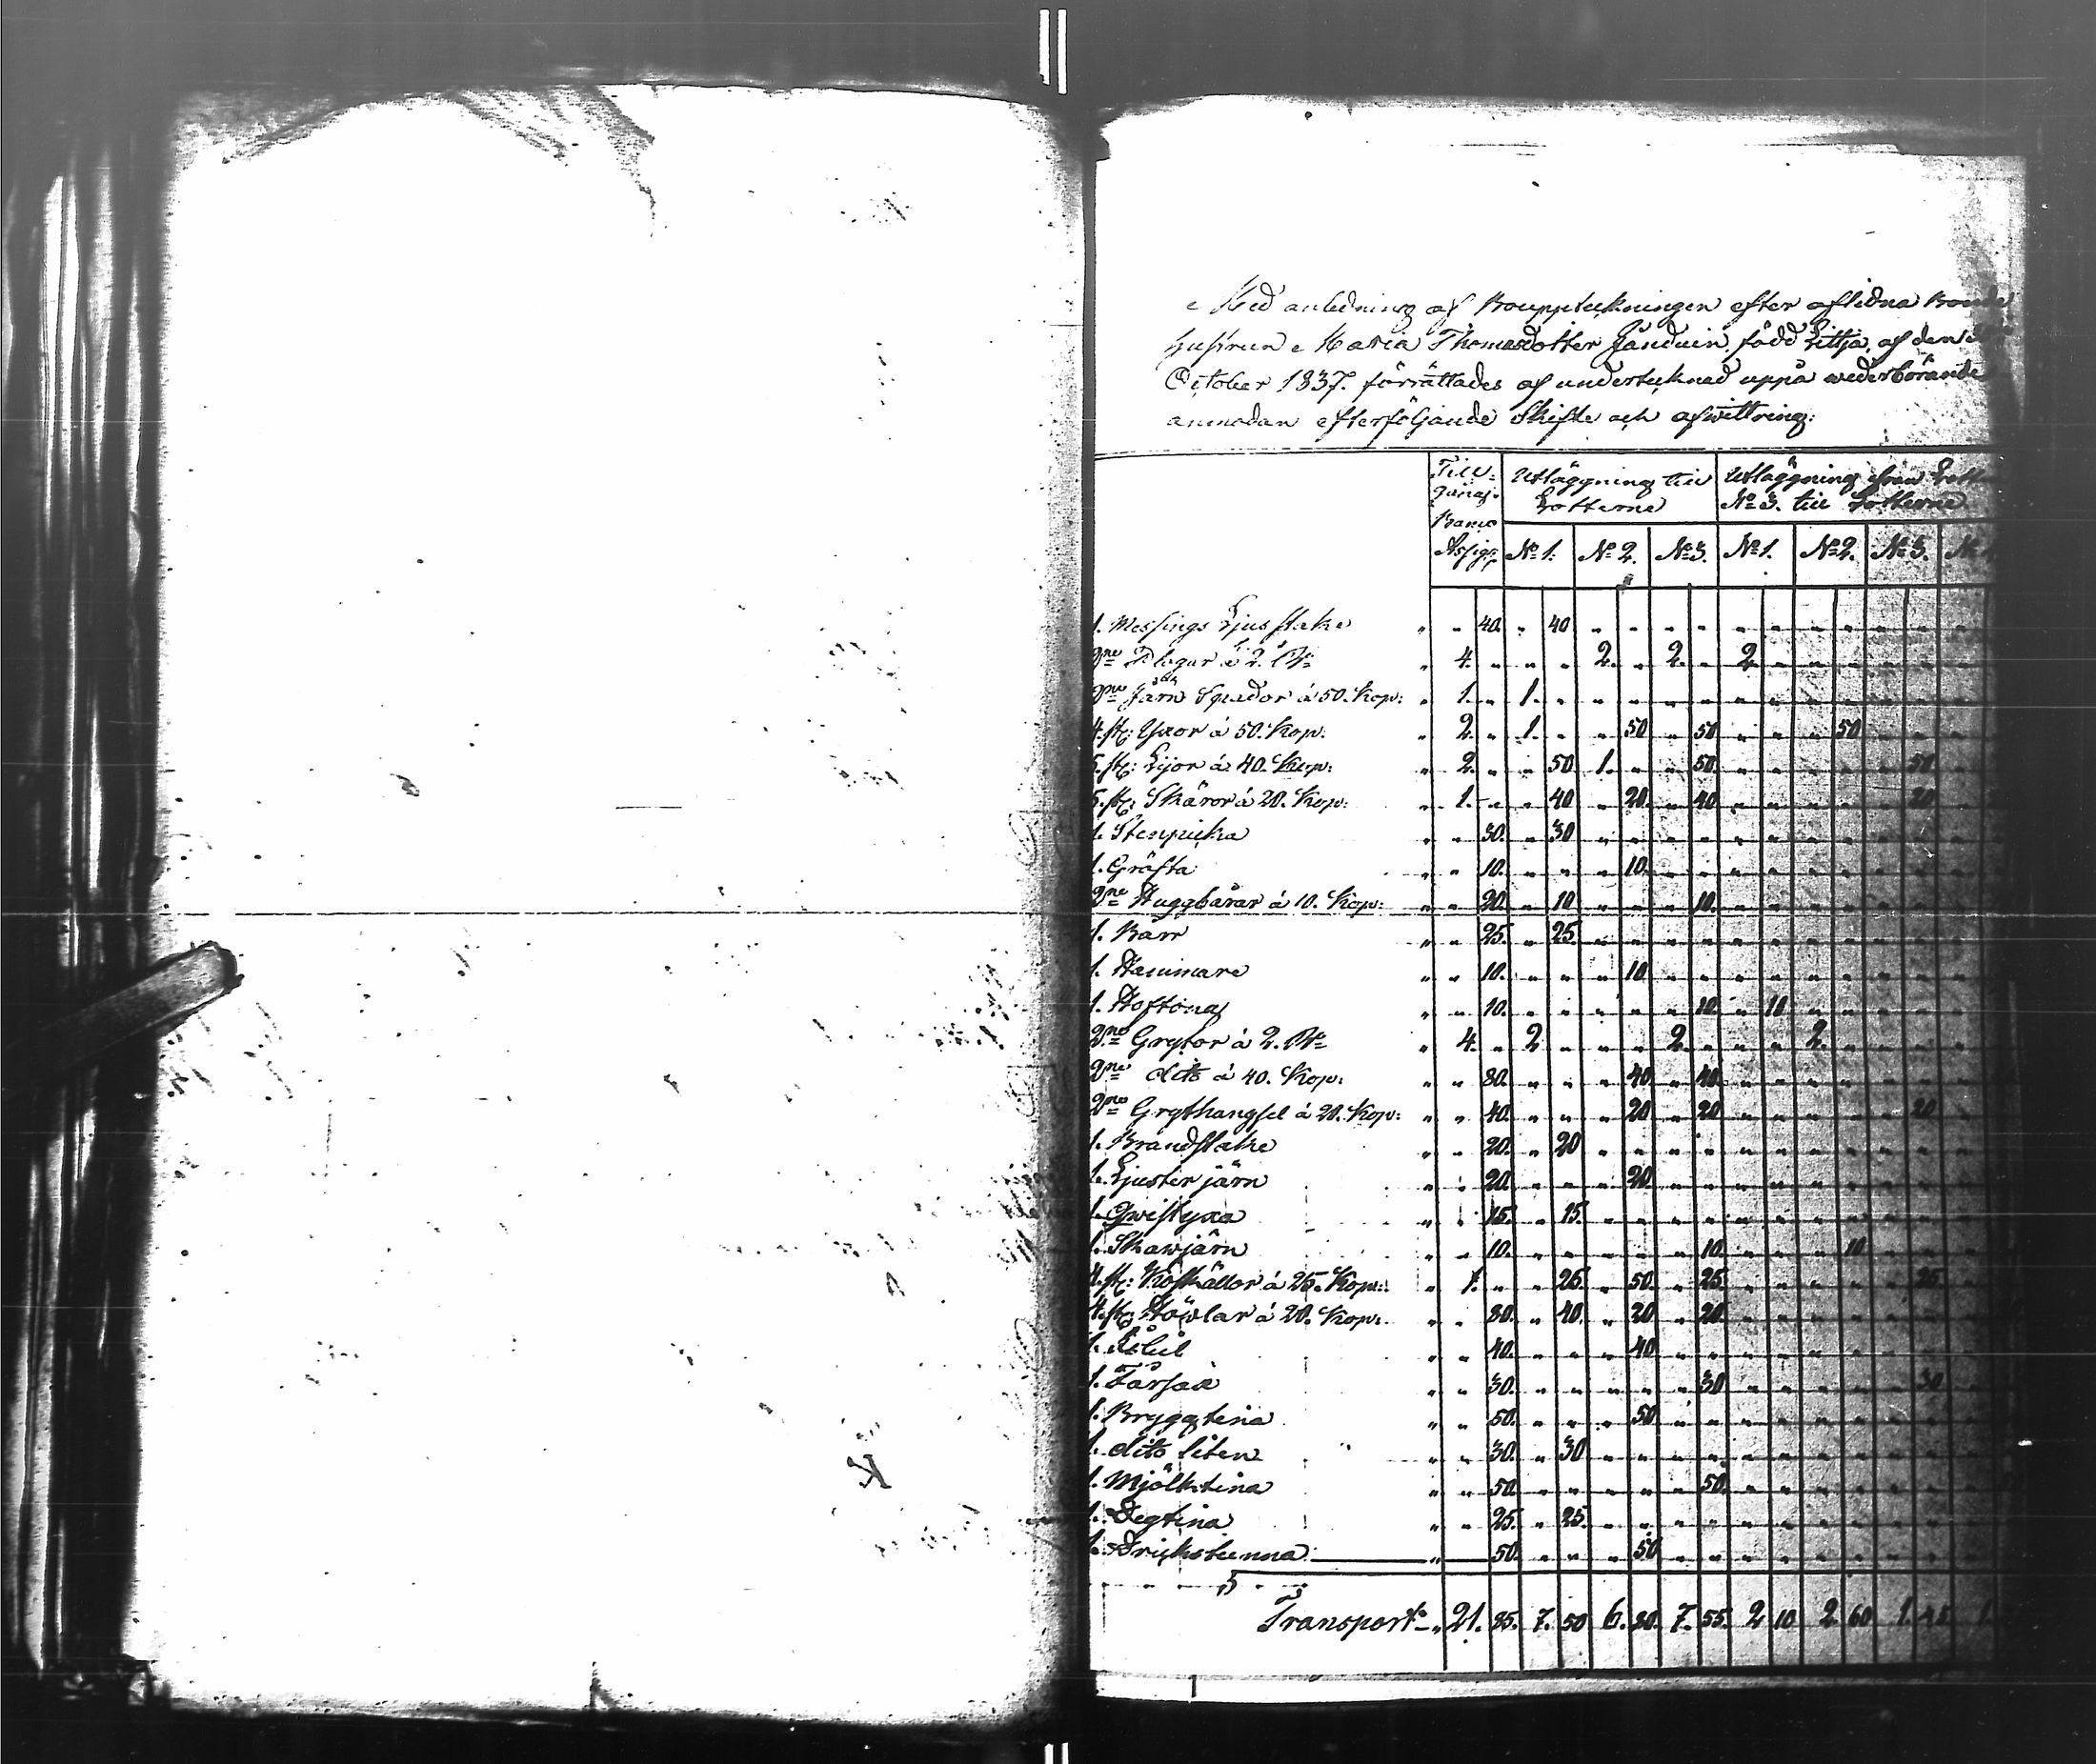 Med anledning af Boupptekningen efter aflidna Bonde
hustrun Maria Thomasdotter född Littja, af den
October 1837. förrättades af undertecknad uppå wederbörande
anmodan efterföljande Skifte och afwittring:
Till- Utläggning till Utläggning från
gång. Lotterne No 3. till Lotterne
Banco
Assig: No 1. No 2. No 3. No 1. No 2. No 3. No
1. Messings Ljusstake " " 40. " 40 " " " " " " " " " "
2ne Plogar á 2. R " 4. " " " 2. " 2. " 2 " " " " "
2ne Järn Spador á 50. Kop: " 1. " 1. " " " " " " " " " " "
4. st: Yxor á 50. Kop: " 2. " 1. " " 50 " 50 " " " 50 " "
5. st: Lijor á 40. Kop: " 2. " " 50 1. " " 50 " " " " " 50
5. st: Skäror á 20. Kop: " 1. " " 40 " 20. " 40 " " " " " 20
1. Stenpicka " " 30. " 30 " " " " " " " " " "
1. Gräfta " " 10. " " " 10. " " " " " " " "
2ne Huggbårar á 10. Kop: " " 20. " 10 " " " 10. " " " " " "
1. Barr " " 25. " 25. " " " " " " " " " "
1. Hammare " " 10. " " " 10 " " " " " " " "
1. Hoftång " " 10. " " " " " 10. " 10 " " " "
2ne Grytor á 2. R " 4. " 2 " " " 2. " " " 2. " " "
2ne dito á 40. Kop: " " 80. " " " 40. " 40 " " " " " "
2ne Grythangsel á 20. Kop: " " 40. " " " 20 " 20 " " " " " 20
1. Brandstake " " 20. " 20 " " " " " " " " " "
1. Ljusterjärn " " 20. " " " 20. " " " " " " " "
1. Qwistyxa " " 15. " 15. " " " " " " " " " "
1. Skawjärn " " 10. " " " " " 10. " " " 10 " "
4. st: Koskällor á 25. Kop: " 1. " " 25. " 50. " 25. " " " " " 25.
4. st: Höwlar á 20. Kop: " " 80. " 40. " 20 " 20. " " " " " "
1. " " 40. " " " 40 " " " " " " " "
1. Fårsax " " 30. " " " " " 30 " " " " " 30
1. Bryggtina " " 50. " " " 50 " " " " " " " "
1. dito liten " " 30. " 30 " " " " " " " " " "
1. Mjölktina " " 50. " " " " " 50. " " " " " "
1. Degtina " " 25. " 25. " " " " " " " " " "
1. Drickstunna " 50. " " " 50 " " " " " " " "
Transport " 21. 85. 7. 50 6. 80. 7. 55. 2 10 2 60 1. 45